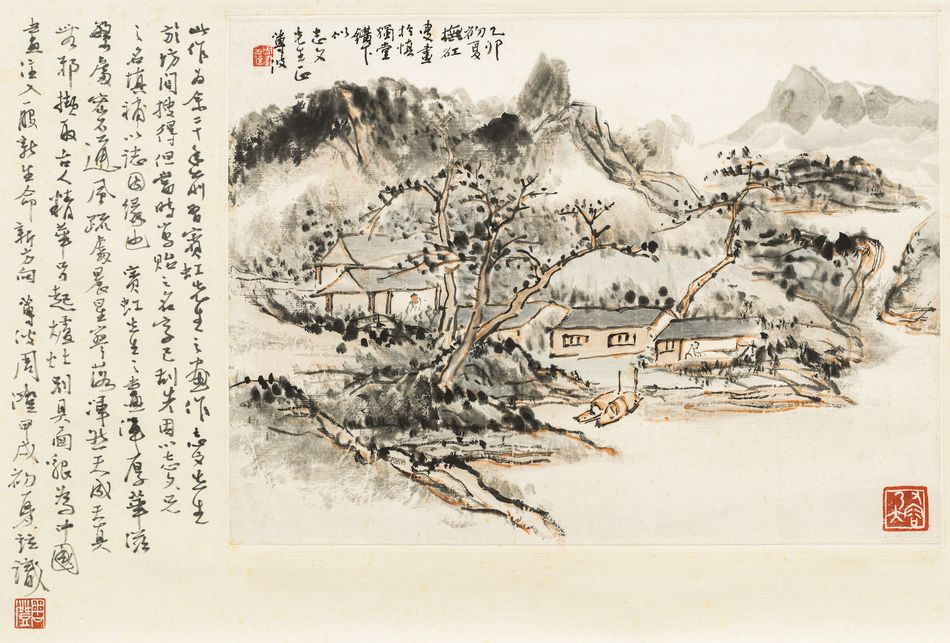 乙卯
初夏
撫虹
叟畫
於慎
獨堂
鐙下
似
志文
先生正
蓴波
此作為余二十年前習賓虹先生之畫作志文先生
於坊間搜得但當時寫貽之名字已刮失因以志文兄
之名填補以誌因緣也賓虹先生之畫渾厚華滋
繁處密不通風疏處晨星寥落渾然天成天真
無邪擷取古人精華另起爐灶別具面貌為中國
畫注入一股新生命新方向蓴波周澄甲戌初夏註識
周澄